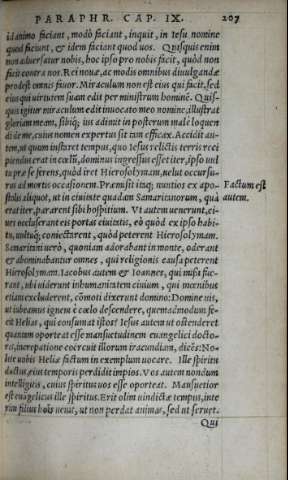 PARAPHR. CAP. IX. 207
id animo faciant, modò faciant, inquit, in tesu nomine
quod faciunt, & idem faciant quod uos. Quisquis enim
non aduersatur nobis, hoc ipso pro nobis facit, quòd non
facit contra nos. Rei nouæ, ac modis omnibus diuulgandæ
prodest omnis fauor. Miraculum non est eius qui facit, sed
eius qui uirtutem suam edit per ministrum hominẽ. Quis-
quis igitur miraculum edit inuocato meo nomine, illustrat
gloriam meam, sibiq; ius adimit in posterum malè loquen
di de me, cuius nomen expertus sit tam efficax. Accidit au-
tem, ut quum instaret tempus, quo Iesus relictis terris reci
piendus erat in cœlũ, dominus ingressus esset iter, ipso uul
tu præ se ferens, quòd iret Hierosolymam, uelut occursu-
rus ad mortis occasionem. Præmisit itaq; nuntios ex apo-
stolis aliquot, ut in ciuitate quadam Samaritanorum, quà
Factum est
autem.
erat iter, pararent sibi hospitium. Vt autem uenerunt, ci-
ues occluserunt eis portas ciuitatis, eò quòd ex ipso habi-
tu, uultuq; coniectarent, quòd peterent Hierosolymam.
Samaritani uerò, quoniam adorabant in monte, oderant
& abominabantur omnes, qui religionis causa peterent
Hierosolymam. Iacobus autem & Ioannes, qui missi fue-
rant, ubi uiderunt inhumanitatem ciuium, qui mœnibus
etiam excluderent, cõmoti dixerunt domino: Domine uis,
ut iubeamus ignem è cœlo descendere, quemadmodum fe-
cit Helias, qui consumat istos? Iesus autem ut ostenderet
quantam oporteat esse mansuetudinem euangelici docto-
ris, increpatione coërcuit illorum iracundiam, dicẽs: No-
lite uobis Heliæ factum in exemplum uocare. Ille spiritu
ductus, eius temporis perdidit impios. Vos autem nondum
intelligitis, cuius spiritus uos esse oporteat. Mansuetior
est euãgelicus ille spiritus. Erit olim uindictæ tempus, inte
rim filius hoĩs uenit, ut non perdat animas, sed ut seruet.
Qui